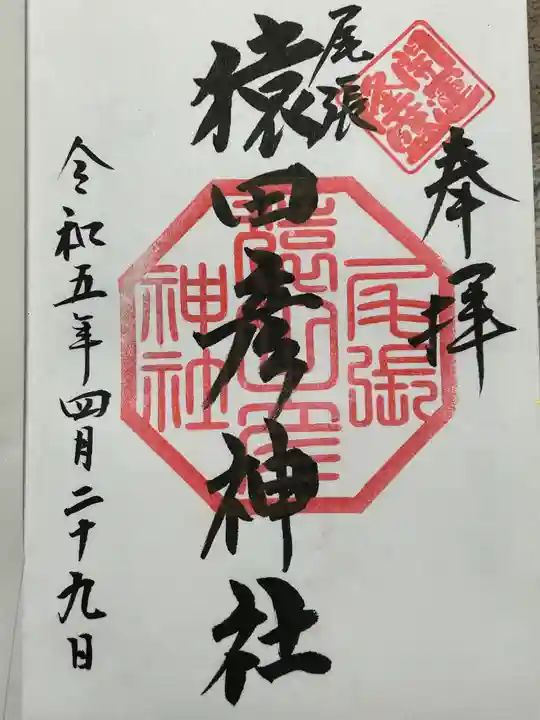 奉拝
尾張
猿田彦神社
尾張
神社
令和五年四月二十九日